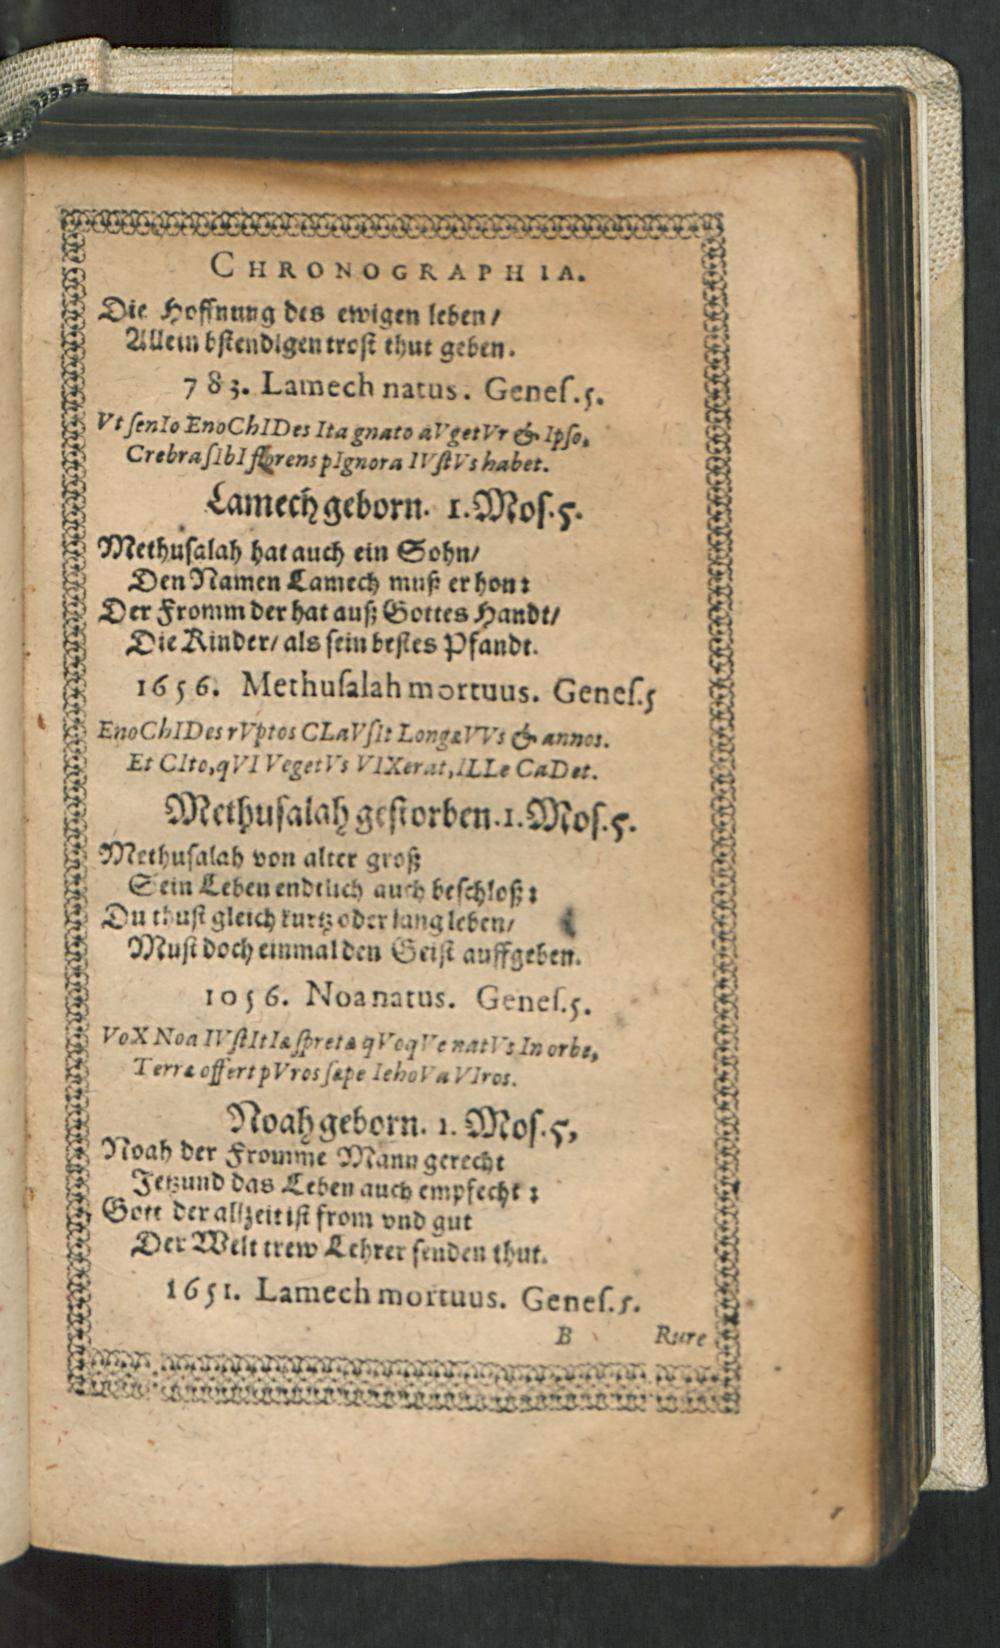 CHRONOGRAPHIA.
Die Hoffnung des ewigen leben/
Allein bstendigen trost thut geben.
783. Lamech natus. Genes.5.
Vt senIo EnoChIDes Ita gnato aVgetVr & Ipso,
Crebra sIbI florens pIgnora IVstVs habet.
Lamech geborn. 1. Mos.5.
Methusalah hat auch ein Sohn/
Den Namen Lamech muß er hon:
Der Fromm der hat auß Gottes Handt/
Die Kinder/ als sein bestes Pfandt.
1656. Methusalah mortuus. Genes.5
EnoChIDes rVptos CLaVsIt LongæVVs & annos.
Et CIto, qVI VegetVs VIXerat, ILLe CaDet.
Methusalah gestorben. 1. Mos.5.
Methusalah von alter groß
Sein Leben endtlich auch beschloß:
Du thust gleich kurtz oder lang leben/
Must doch einmal den Geist auffgeben.
1056. Noa natus. Genes.5.
VoX Noa IVstItIæ spretæ qVoqVe natVs In orbe,
Terræ offert pVros sæpe IehoVa VIros.
Noah geborn. 1. Mos.5,
Noah der Fromme Mann gerecht
Jetzund das Leben auch empfecht:
Gott der allzeit ist from vnd gut
Der Welt trew Lehrer senden thut.
1651. Lamech mortuus. Genes.5.
B Rure